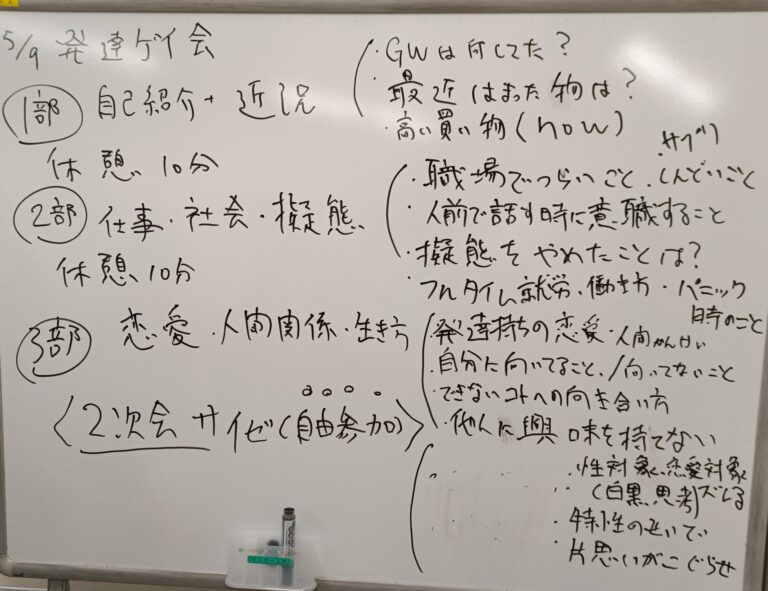 5/9 発達ゲイ会
1部 自己紹介+近況
休憩 10分
2部 仕事・社会・擬態
休憩 10分
3部 恋愛・人間関係・生き方
〈2次会 サイゼ(自由参加)〉
・GWは何してた?
・最近はまった物は?
・高い買い物(now)
・サプリ
・職場でつらいこと、しんどいこと
・人前で話す時に意職すること
・擬態をやめたことは?
フルタイム就労・働き方・パニック
時のこと
・発達持ちの恋愛・人間かんけい
・自分に向いてること、/向いてないこと
・できないコトへの向き合い方
・他人に興味を持てない
・性対象、恋愛対象
(白黒思考)ズレる
・特性のせいで
・片思いがこじらせ